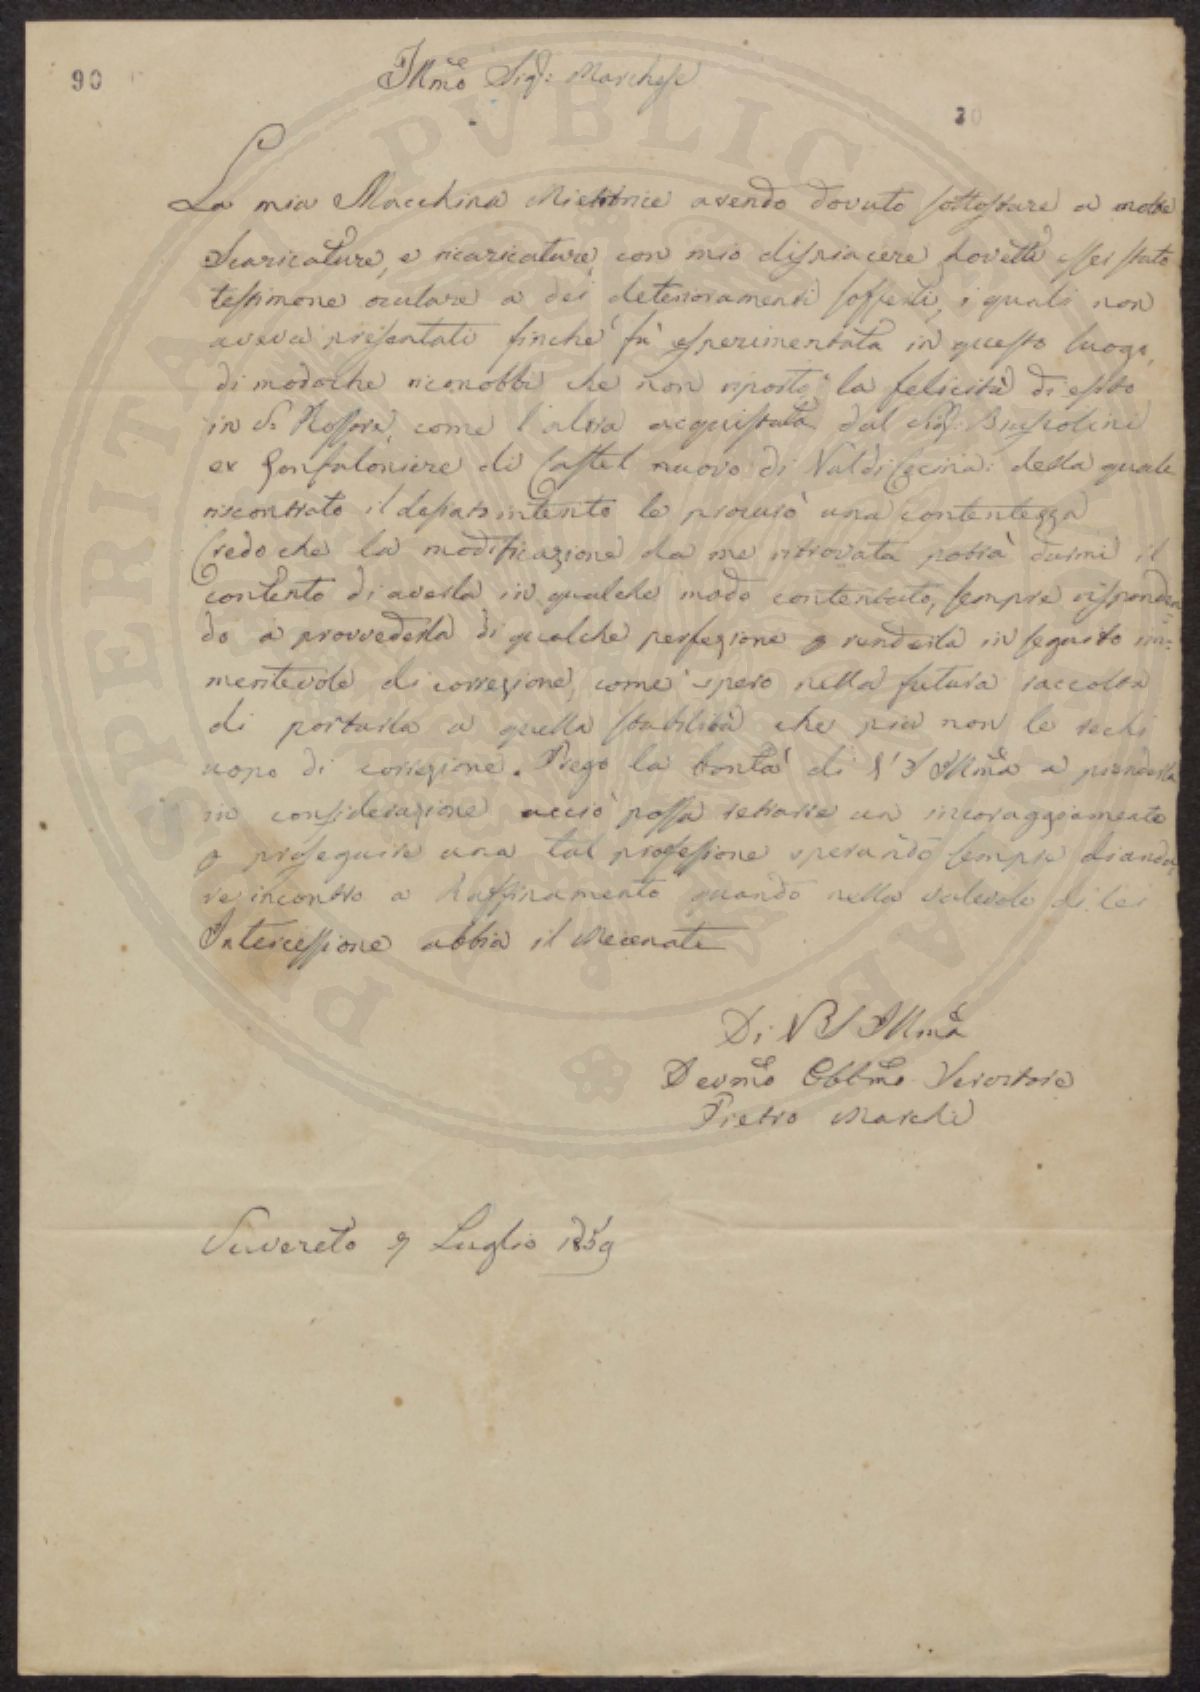 90
Illmo Sigr: Marchese
20
La mia Macchina Mietitrice avendo dovuto sottostare a molte
Scaricature, e ricaricature, con mio dispiacere dovetti esser stato
testimone oculare a dei deterioramenti sofferti, i quali non
aveva presentati finchè fù esperimentata in questo luogo,
di modoche riconobbi che non riportò la felicità di esito
in S. Rossore, come l'altra acquistata dal Sig:
ex Gonfaloniere di Castel nuovo di Val di Cecina: della quale
riscontrato il desiato intento le procurò una contentezza
Credo che la modificazione da me ritrovata potrà darmi il
contento di averla in qualche modo contentato, sempre
do a provvederla di qualche perfezione p renderla in seguito im=
meritevole di correzione, come spero nella futura raccolta
di portarla a quella stabilità che più non le rechi
uopo di correzione. Prego la bontà di V. S. Illma a prenderla
in considerazione acciò possa retrarre un incoraggiamento
p proseguire una tal professione sperando sempre di anda
re incontro a Raffinamento quando nella valevole di lei
Intercessione abbia il Mecenate
Di V S Illma
Devmo Obbmo Servitore
Pietro Marchi
Suvereto 9 Luglio 1859
PERITAT PVBLIC